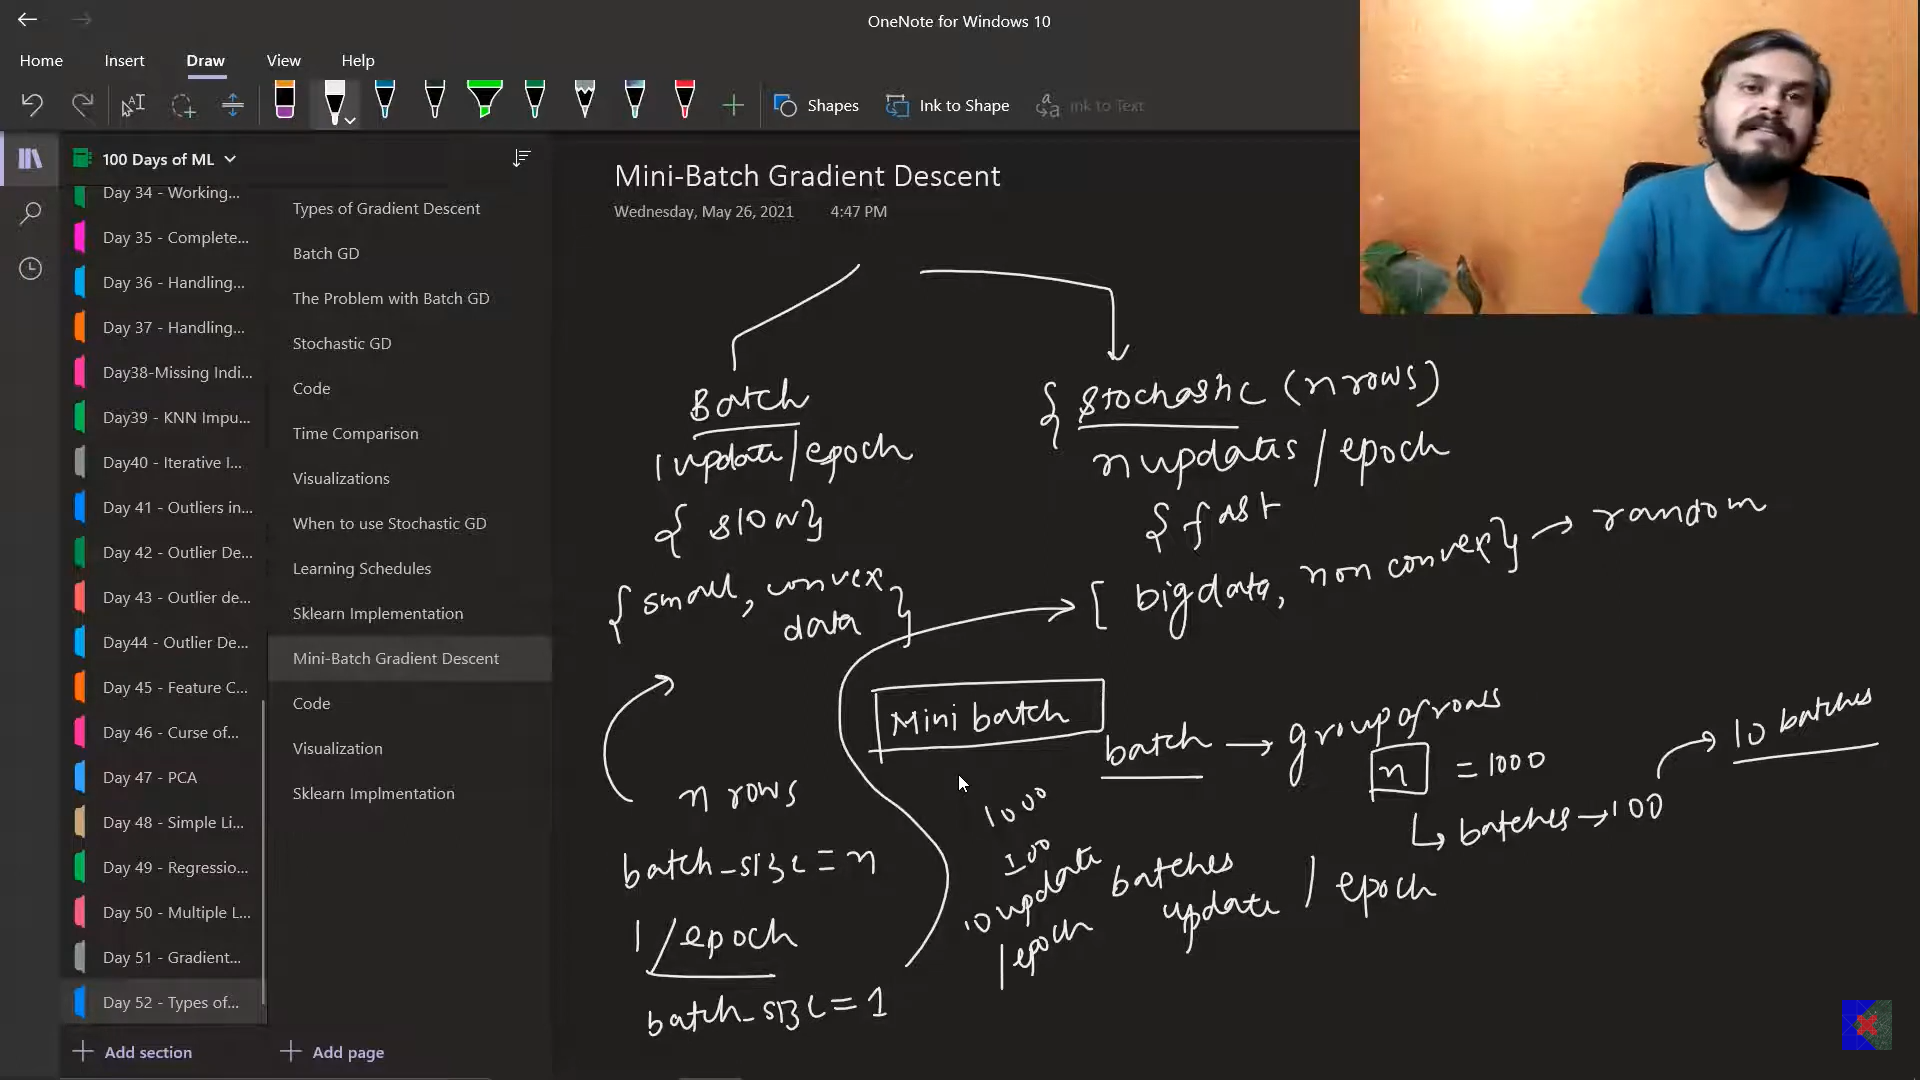 OneNote for Windows 10
Home Insert Draw View Help
Shapes Ink to Shape Ink to Text
100 Days of ML
Day 34 - Working...
Day 35 - Complete...
Day 36 - Handling...
Day 37 - Handling...
Day38-Missing Indi...
Day39 - KNN Impu...
Day40 - Iterative I...
Day 41 - Outliers in...
Day 42 - Outlier De...
Day 43 - Outlier de...
Day44 - Outlier De...
Day 45 - Feature C...
Day 46 - Curse of...
Day 47 - PCA
Day 48 - Simple Li...
Day 49 - Regressio...
Day 50 - Multiple L...
Day 51 - Gradient...
Day 52 - Types of...
Add section
Types of Gradient Descent
Batch GD
The Problem with Batch GD
Stochastic GD
Code
Time Comparison
Visualizations
When to use Stochastic GD
Learning Schedules
Sklearn Implementation
Mini-Batch Gradient Descent
Code
Visualization
Sklearn Implmentation
Add page
Mini-Batch Gradient Descent
Wednesday, May 26, 2021 4:47 PM
Batch
1 update/epoch
{ slow}
{ small, convex
data }
{ Stochastic (n rows)
n updates / epoch
{ fast
[ big data, non convex} → random
Mini batch
batch → group of rows
n = 1000
↳ batches → 100 → 10 batches
n rows
batch_size = n
1 /epoch
batch_size = 1
1000
100
10 update
/epoch
batches
update / epoch